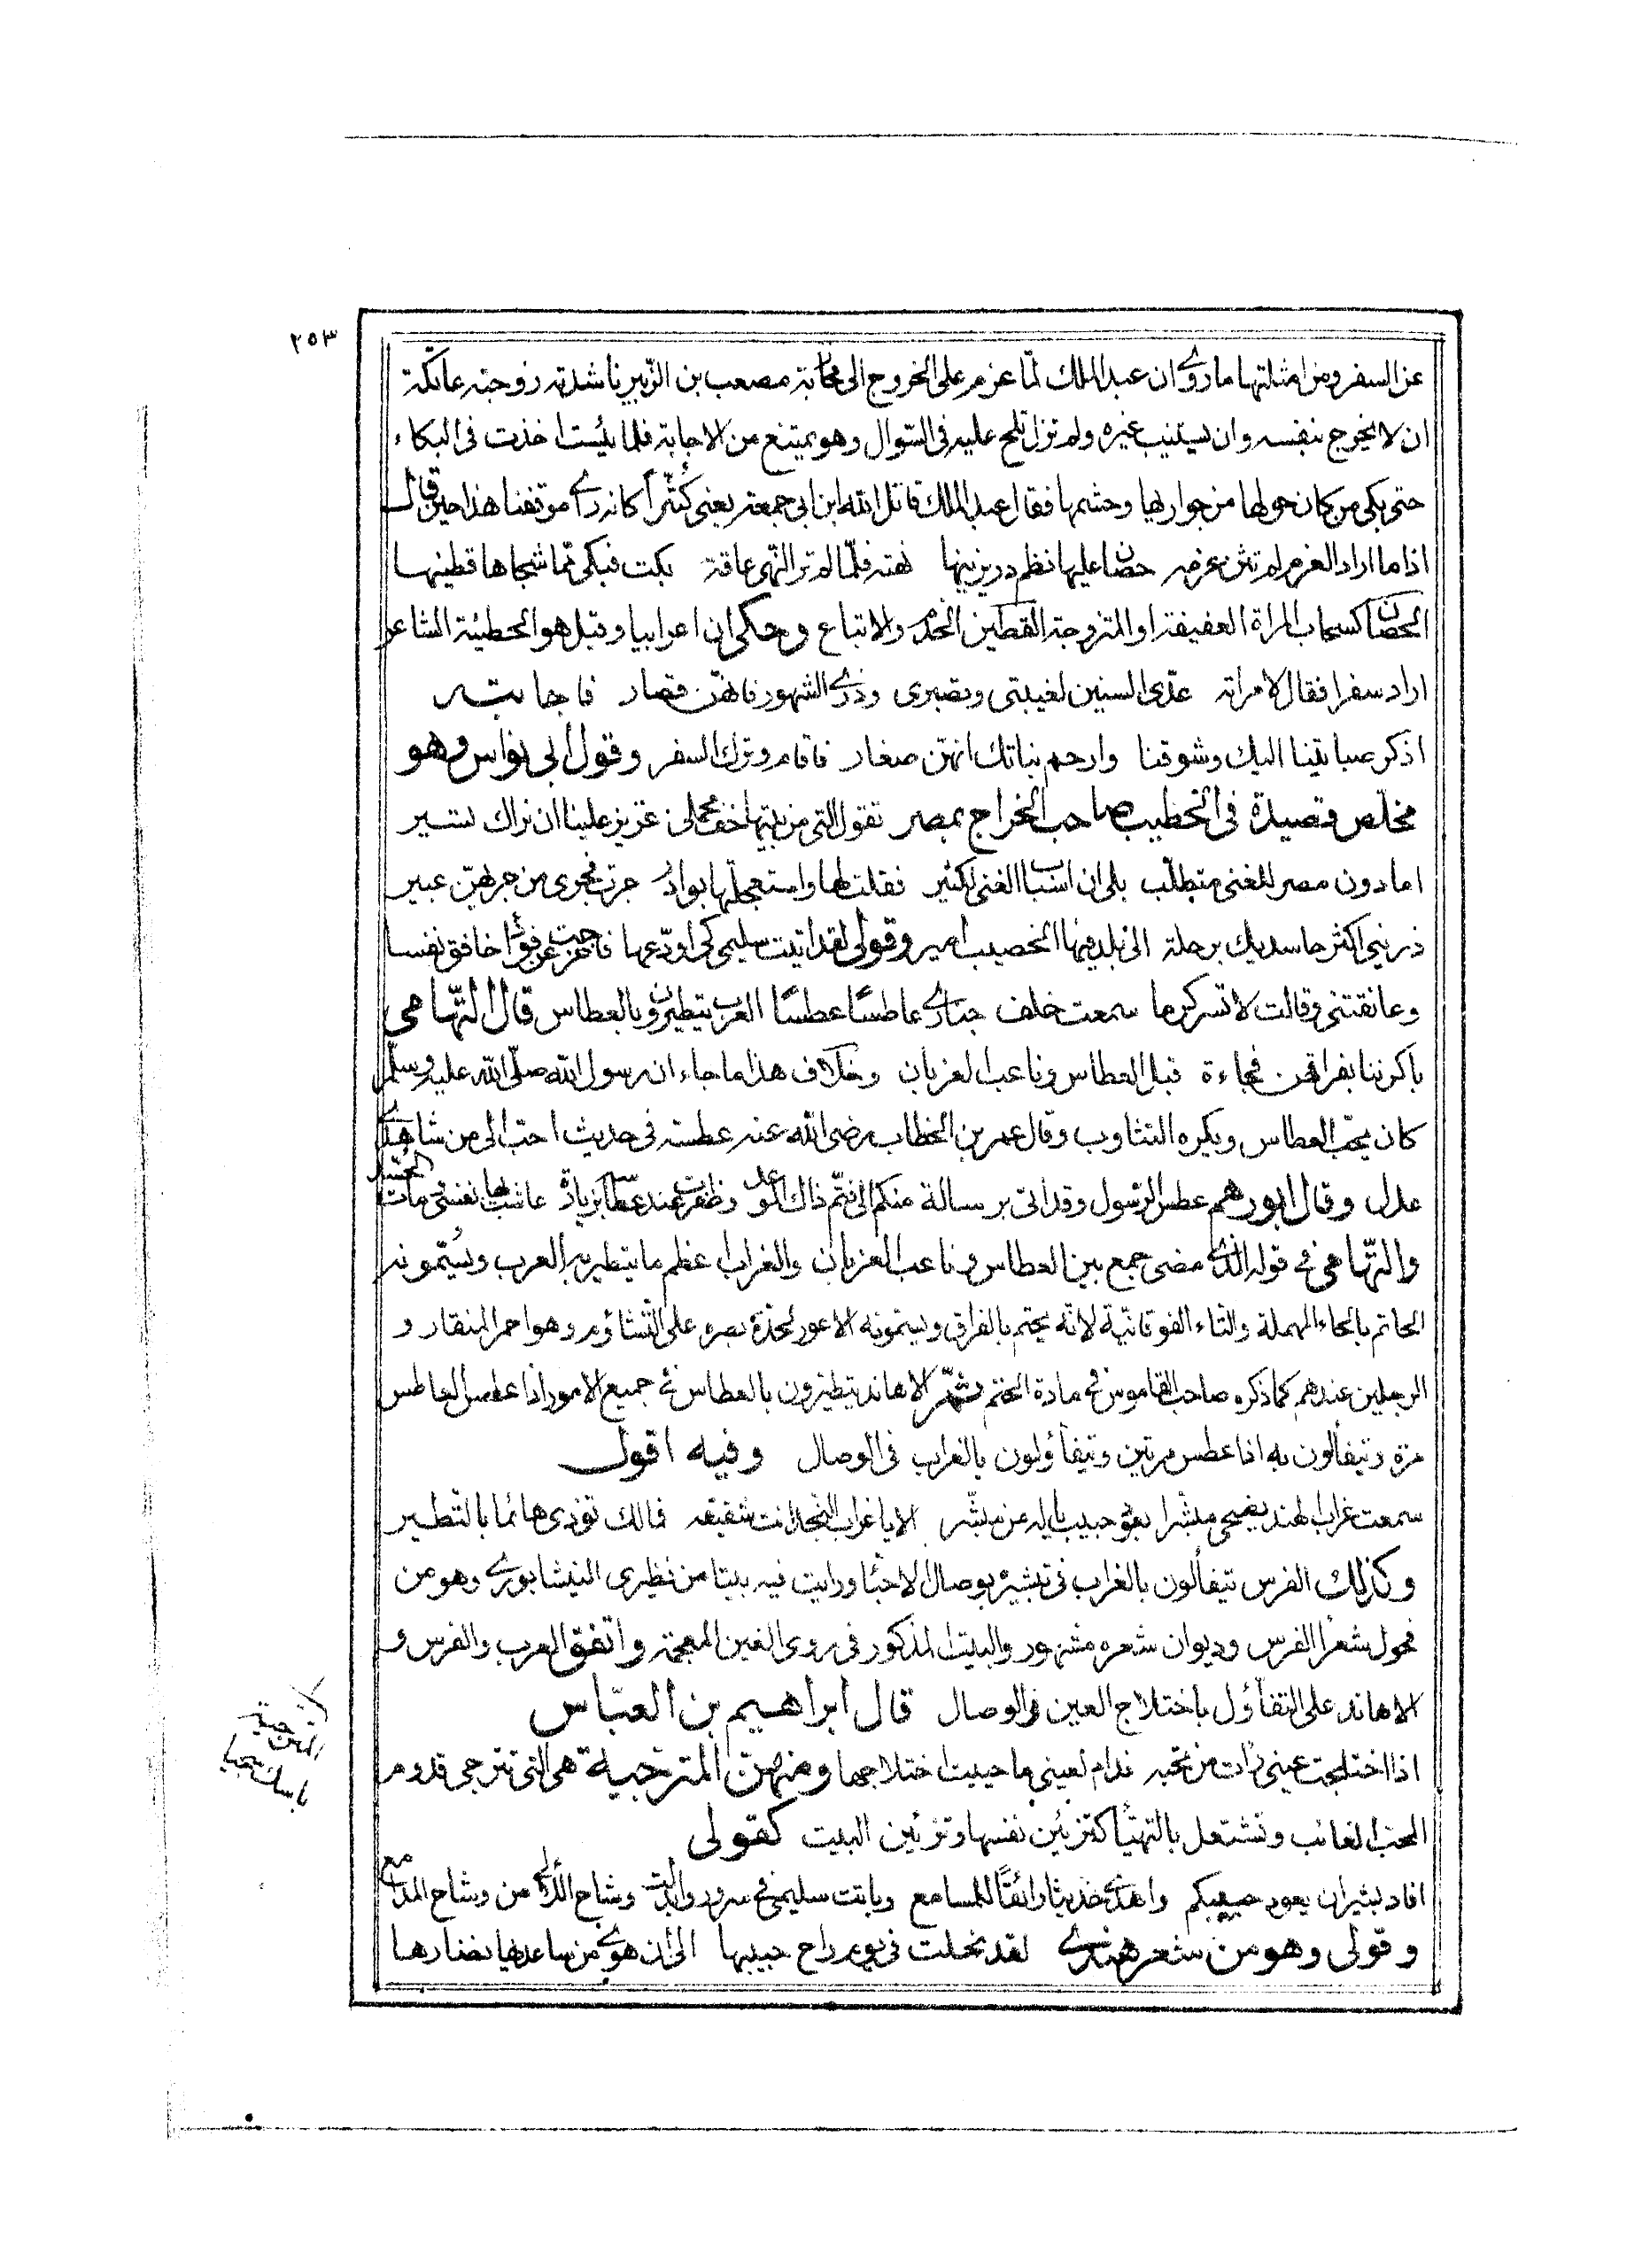 ٢٥٣
عن السفر ومن امثلتها ما روى ان عبد الملك لمّا عزم على الخروج الى محاربة مصعب بن الزّبير ناشدته زوجته عاتكة
ان لا يخرج بنفسه وان يستنيب غيره ولم تزل تلح عليه فى السّوال وهو يمتنع من الاجابة فلما يئست اخذت فى البكاء
حتى بكى من كان حولها من جواريها وحشمها فقال عبد الملك قاتل الله ابن ابى جمعة يعنى كُثيّراً كانه راى موقفنا هذا حين قال
اذا ما اراد الغزم لم تثن عزمه حصان عليها نظم در يزينها نهته فلمّا لم تر النّهى عاقة بكت فبكى ممّا شجاها قطينها
الحصان كسحاب المراة العفيفة او المتزوجة القطين الخدم والاتباع وحكى ان اعرابيا وقيل هو الحطيئة الشاعر
اراد سفرا فقال لامراته عدّى السنين لغيبتى وتصبرى وذرى الشهور فانهنّ قصار فاجابته
اذكر صبابتنا اليك وشوقنا وارحم بناتك انهنّ صغار فاقام وترك السفر وقول ابى نواس وهو
مخلّص قصيدة فى الخطيب صاحب الخراج بمصر تقول التى من بيتها خف محملى عزيز علينا ان نراك تسير
اما دون مصر للغنى متطلّب بلى ان اسباب الغنى لكثير فقلت لها واستعجلتها بوادر جرت فجرى من جريهنّ عبير
ذرينى اكثر حاسديك برحلة الى بلد فيها الخصيب امير وقولى لقد اتيت سليمى كى اودّعها
وعانقتنى وقالت لا تسر كرما سمعت خلف جدارى عاطسًا عطسًا العرب يتطيرون بالعطاس قال التّهامى
باكرننا بفراقهن فجاءة قبل العطاس وناعب الغربان وخلاف هذا ما جاء ان رسول الله صلّى الله عليه وسلّم
كان يحبّ العطاس ويكره التثاوب وقال عمر بن الخطاب رضى الله عنه عطسة فى حديث احب الى من شاهدى
عدل وقال ابو رهم عطس الرّسول وقد اتى برسالة منكم الى فتمّ ذاك الموعد
والتّهامى فى قوله الذى مضى جمع بين العطاس وناعب الغربان والغراب اعظم ما يتطير به العرب ويسُمّونه
الحاتم بالحاء المهملة والتاء الفوقانيّة لانّه يحتم بالفراق ويسمّونه الاعور لحدّة بصره على التّشاؤم وهو احمر المنقار و
الرجلين عندهم كما ذكره صاحب القاموس فى مادة الحتم ثمّ الاهاند يتطيرون بالعطاس فى جميع الامور اذا عطس العاطس
مرّة ويتفاَلون به اذا عطس مرتين ويتفأولون بالغراب فى الوصال وفيه اقول
سمعت غراب الهند يضحى مبشّرا بعود حبيب ياله من مبشّر الا يا غراب النجد انت شقيقه فمالك تؤذى هائما بالتّطير
وكذلك الفرس يتفاَلون بالغراب فى تبشيره بوصال الاحبّا ورايت فيه بيتا من نظيرى النيشابورى وهو من
فحول شعرا الفرس وديوان شعره مشهور والبيت المذكور فى روى الغين المعجمة واتفق العرب والفرس و
الاهاند على التفاؤل باختلاج العين فى الوصال قال ابراهيم بن العبّاس
اذا اختلجت عينى رات من تحبه فدام لعينى ما حييت اختلاجها ومنهنّ المترجّية هى التى تترجى قدوم
المحب الغائب وتشتغل بالتهيّأ كتزيين نفسها وتزيين البيت كقولى
افاد بشير ان يعود حبيبكم واهدى حديثا رائقًا للمسامع وباتت سليمى فى سرور وابدلت وشاح اللآلى من وشاح المدامع
وقولى وهو من شعر هندى لقد نحلت فى يوم راح حبيبها الى ان هوى من ساعديها نضارها
المترجية